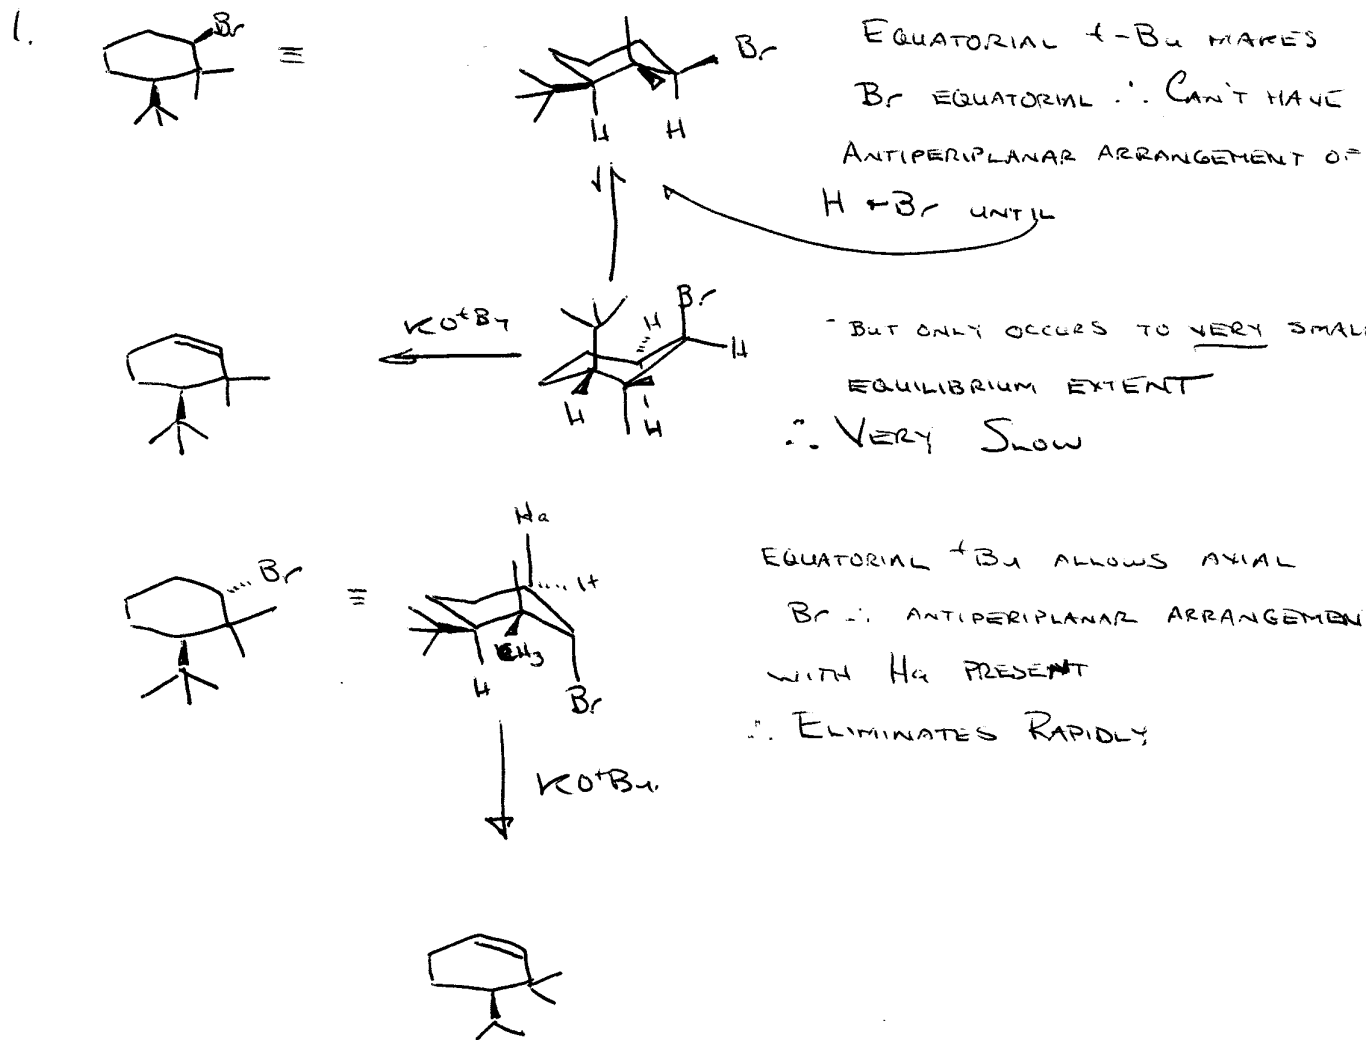 1.
Br
≡
Br
H H
EQUATORIAL t-Bu MAKES
Br EQUATORIAL ∴ CAN'T HAVE
ANTIPERIPLANAR ARRANGEMENT OF
H + Br UNTIL
KOtBu
Br
H
H
H
H
- BUT ONLY OCCURS TO VERY SMALL
EQUILIBRIUM EXTENT
∴ VERY SLOW
Br
≡
Ha
H
CH3
H
Br
EQUATORIAL tBu ALLOWS AXIAL
Br ∴ ANTIPERIPLANAR ARRANGEMEN
WITH Ha PRESENT
∴ ELIMINATES RAPIDLY
KOtBu.